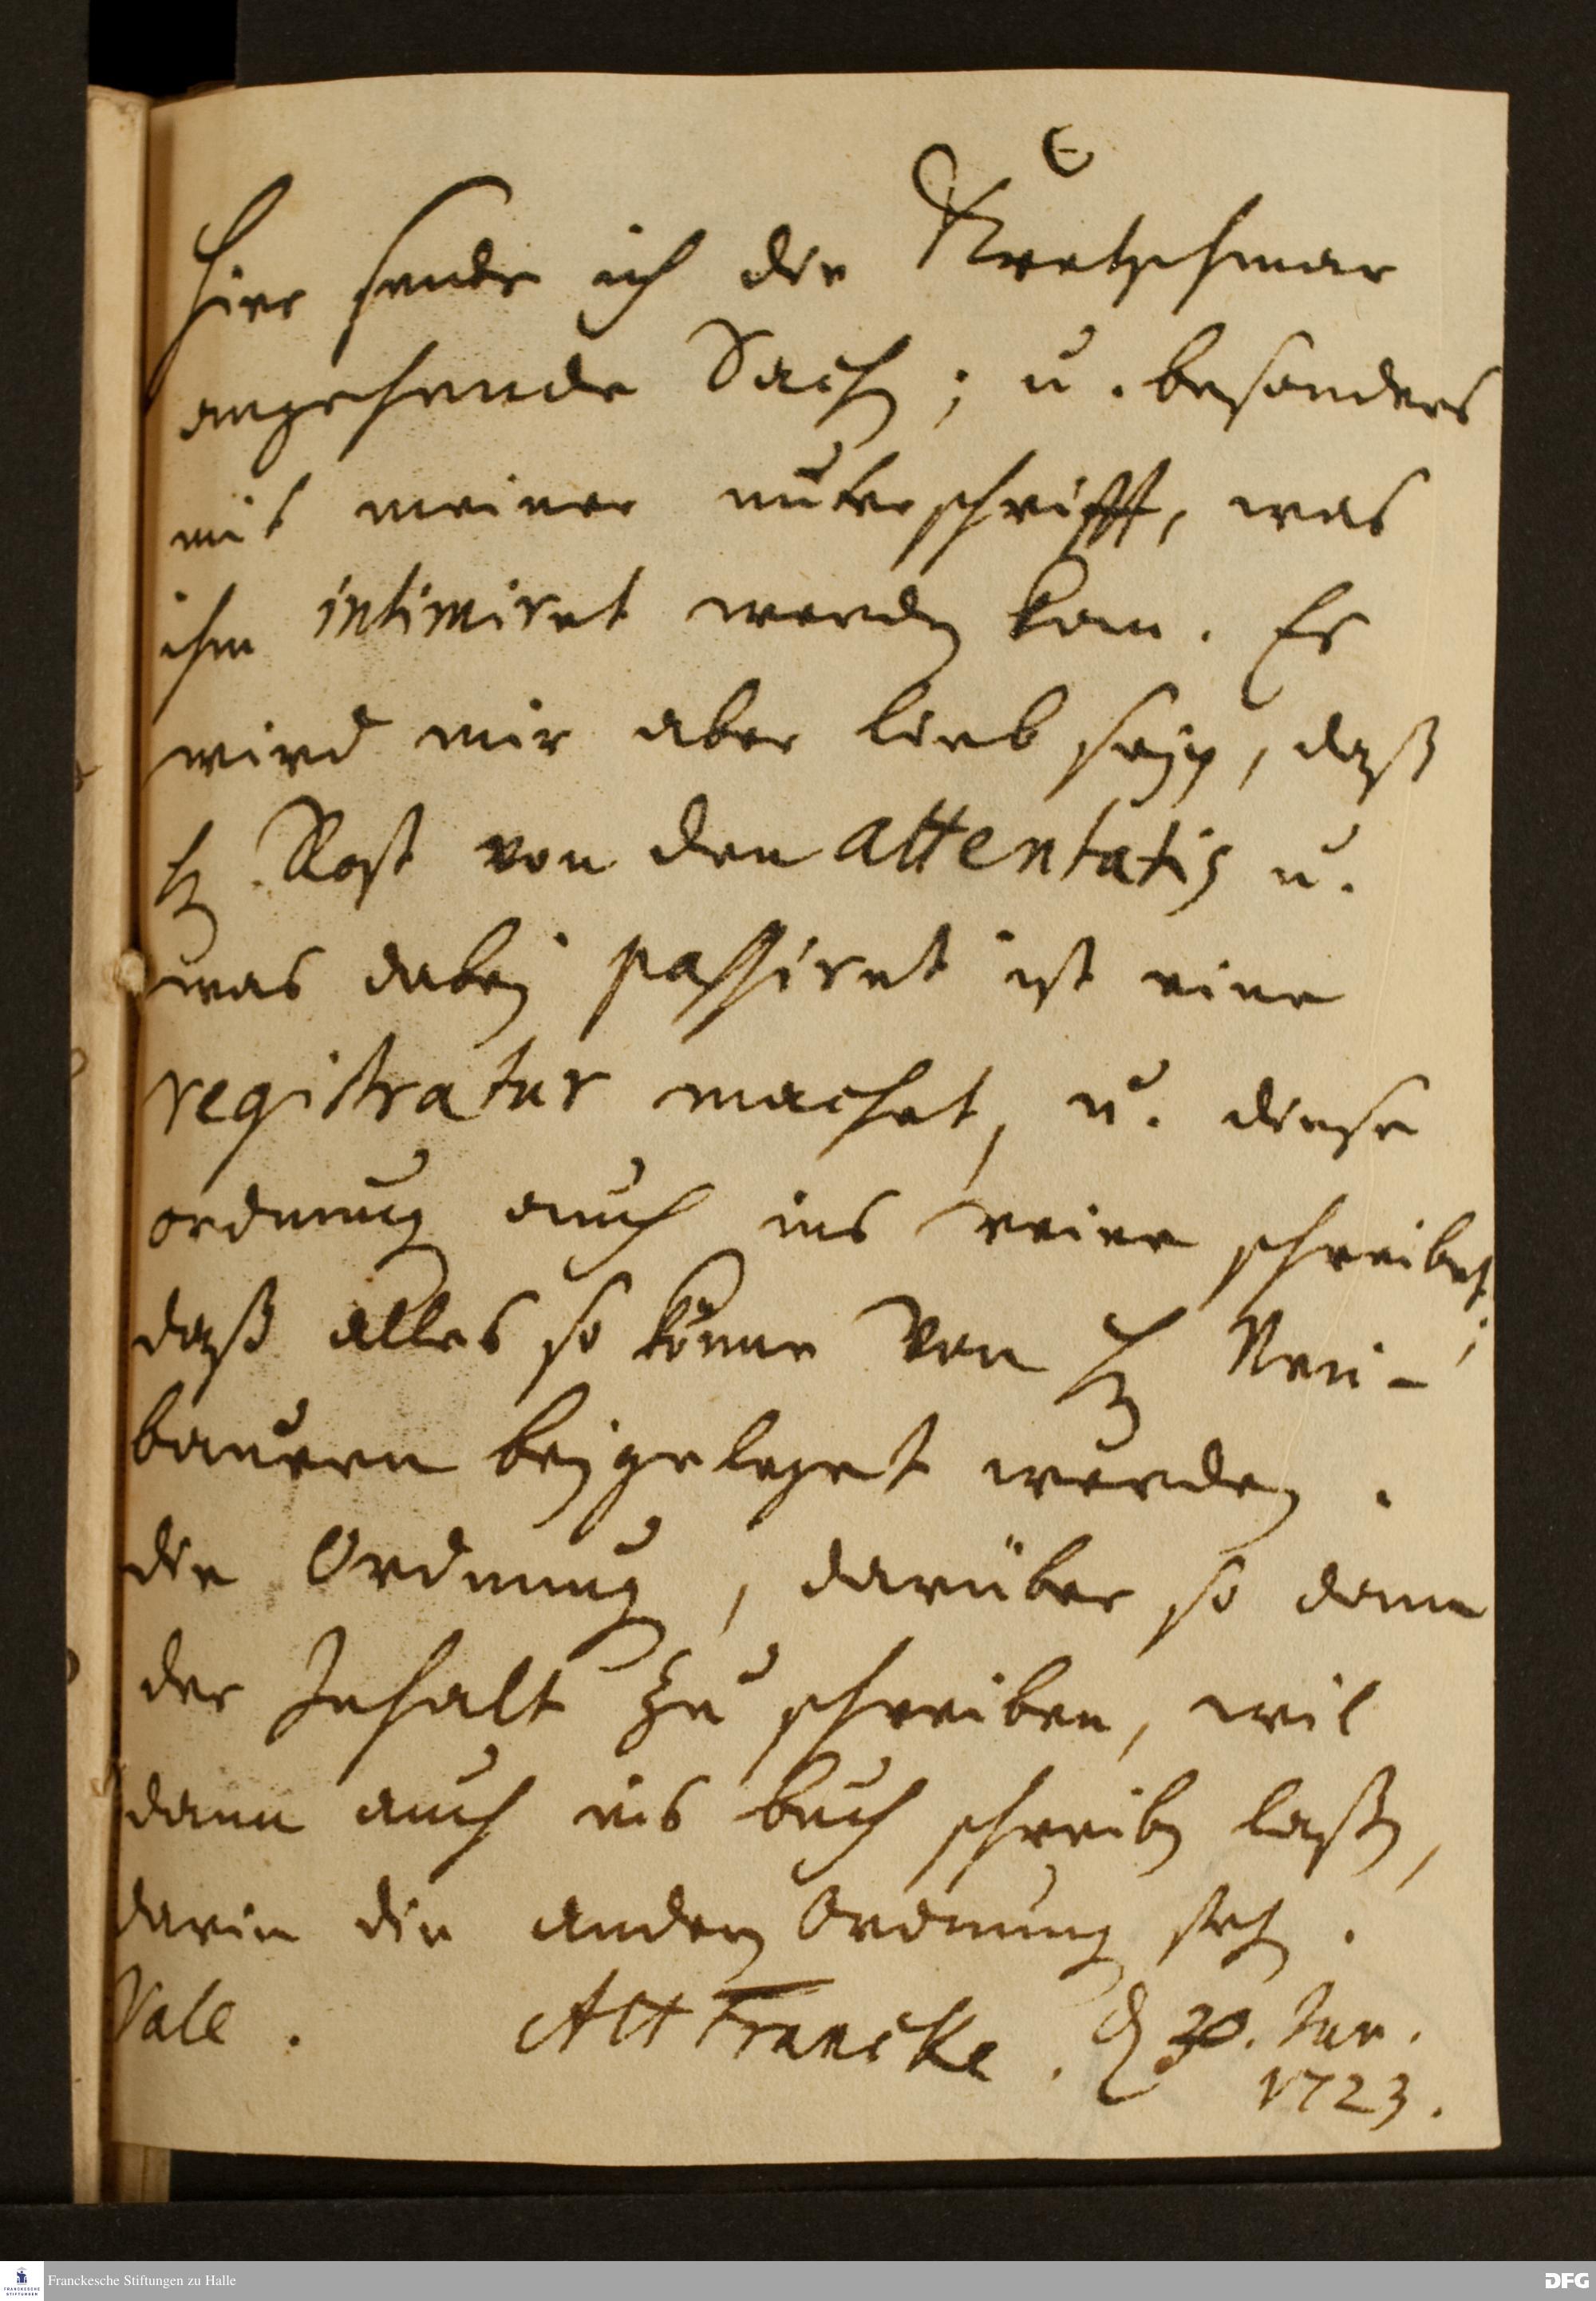 Hier sende ich die Kretzschmar
angehende Sach; u. besonders
mit meiner unterschrifft, was
ihm intimiret werden kan. Es
wird mir aber lieb seyn, daß
H. Rost von den attentatis u.
was dabey passiret ist eine
registratur machet, u. diese
ordnung auch ins reine schreibet;
daß alles so könne von H. Neu-
bauern beygeleget werden.
die Ordnung, darüber so dann
der Inhalt zu schreiben, wil
dann auch ins buch schreiben laßen,
darin die andern Ordnung steh.
Vale. AHFrancke. d 30. Jun.
1723.
Franckesche Stiftungen zu Halle
FRANCKESCHE
STIFTUNGEN
DFG